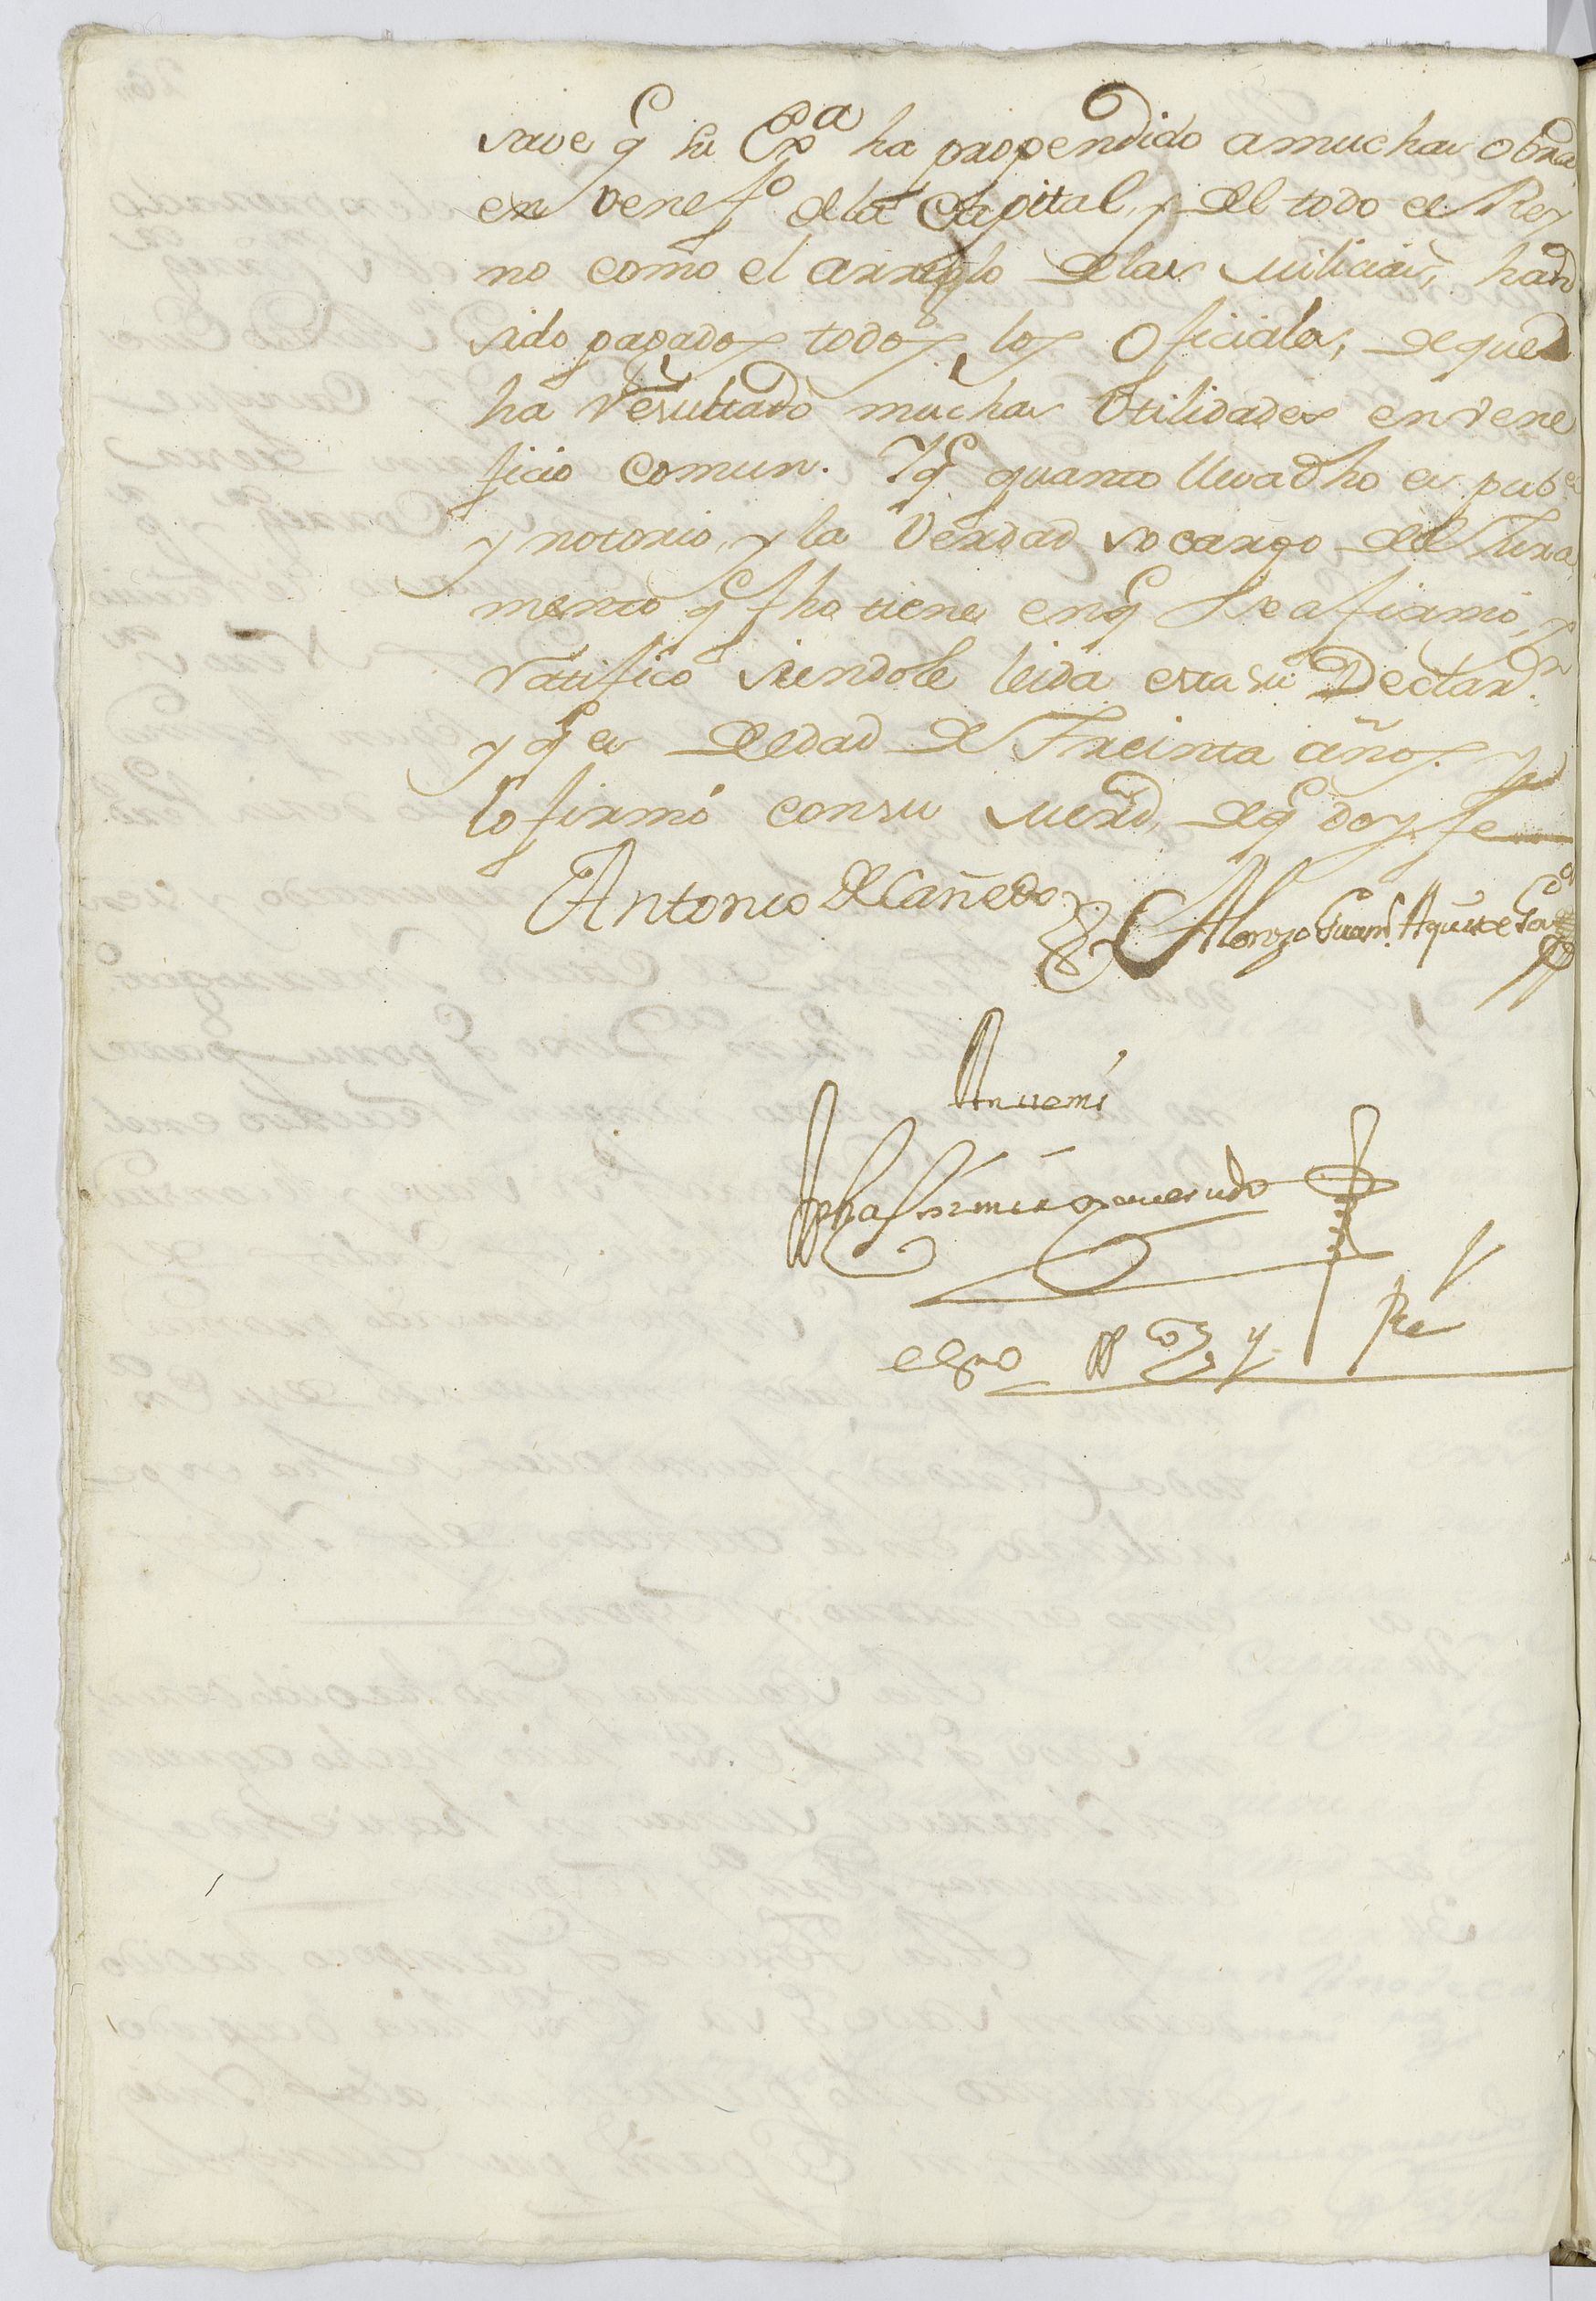 save q̃ su Exª ha propendido a muchas obras
en venefº de la Capital, y del todo el Rey
no como el arreglo de las milicias, han
sido pagados todos los Oficiales, de que
ha resultado muchas Utilidades en vene
ficio comun. Yq̃ quanto lleva dho es pubᶜᵒ
y notorio, y la Verdad so cargo del Jura
mento q̃ fho tiene enq̃ se afirmó, y
ratificó siendole leida esta su Declarⁿ
y q̃ es de edad de Treinta años. y
lo firmó con su merd, deq̃ doy fe
Antonio de Cañedo
Alonzo
Antemi
essno ppᶜᵒ y